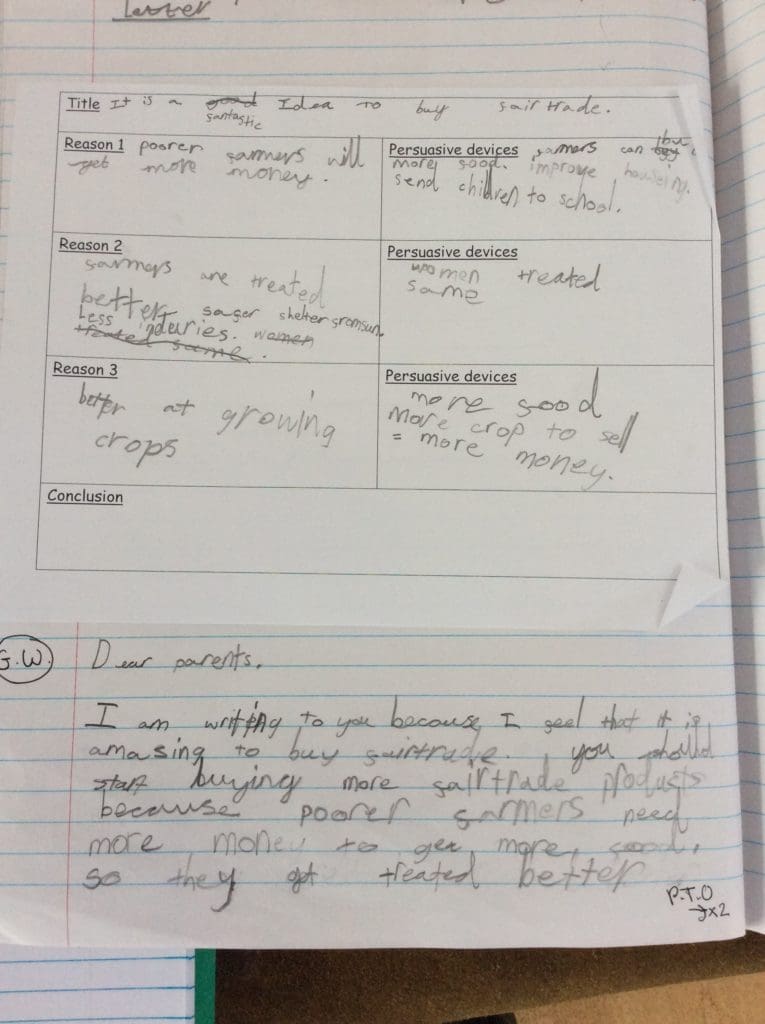 Letter
Title It is a good Idea to buy fairtrade.
fantastic
Reason 1 poorer farmers will
get more money.
Persuasive devices farmers can buy
more food. improve howseing.
send children to school.
Reason 2
farmers are treated
better, safer shelter from sun,
Less injuries. women
treated same.
Persuasive devices
women treated
same
Reason 3
better at growing
crops
Persuasive devices
more food
More crop to sell
= more money.
Conclusion
G.W.
Dear parents,
I am writting to you because, I feel that it is
amasing to buy fairtrade. you should
start buying more fairtrade products
because poorer farmers need
more money to get more, food,
so they get treated better
P.T.O
→x2